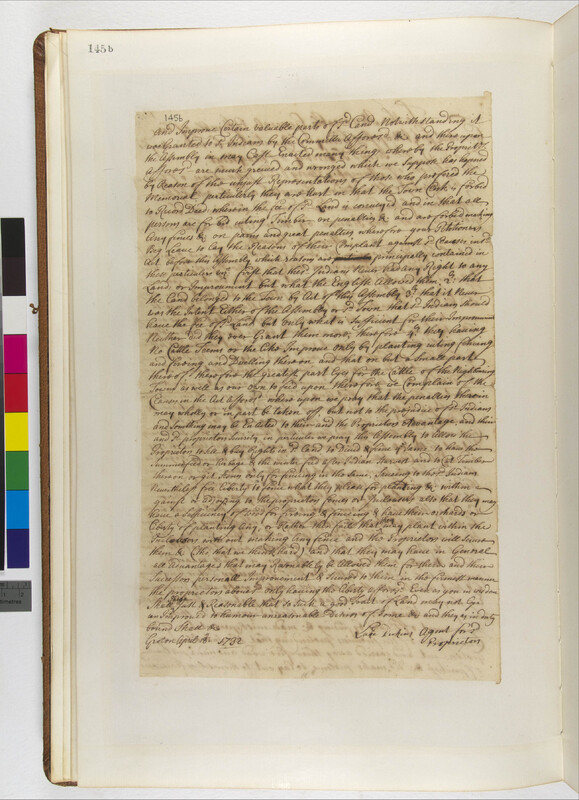 145b
145b
and Improve Certain valuable parts of sd Land Notwithstanding it
was Granted to sd Indians by the Committe Aforesd &c and thereupon
the Assembly in may last Enacted many things where by the
Aforesd are much greived and wronged which we suppose has hapned
by Reason of the unjust Representations of those who prefered the
Memorial. perticulerly they are Hurt in that the Town Clerk is forbid
to Record Deed wherein the fee of sd Land is conveyed and in that all
persons are forbid cuting Timber on penalties & and are forbid making
any fences & on pains and great penalties wherefore your Petitioners
Beg Leave to lay the Reasons of their Complaint against sd Clauses in sd
Act before this Assembly which reasons are principally contained in
these perticulers viz first that these Indians Never had any Right to any
Land or Improvement but what the English Allowed them 2: that
the Land belonged to the Town by Act of this Assembly 3: that it Never
was the Intent Either of the Assembly or sd Town that sd Indians should
have the fee of sd Land but only what is Sufficient for their Improvement
Neither did they ever Grant them more, therefore 4: they haveing
No Cattle Teems or the like Improve only by planting cuting fireing
and fenceing and Dwelling thereon and that on but a Small part
thereof therefore the greatest part Lyes for the Cattle of the Nighbouring
Towns as well as our own to feed upon Therefore we Complain of the
Clauses in the Act afforesd where upon we pray that the penalties therein
may wholly or in part be taken off but not to the prejudice of sd Indians
and Something may be Enacted to their and the Proprietors Advantage, and their
and sd proprietors Security in perticuler we pray this Assembly to allow the
Proprietors to &c & buy Rights in sd Land to Divide & fence sd Land to have the
& the same fed after Indian Harvest and to Cut Timber
thereon or get Stone only for fenceing in the same, Saveing to those Indians
Nevertheless free Liberty to fence what they please for planting & within
gainst or adjoyning to the proprietors fences or Inclosures also that they may
have a Sufficiency of Wood for fireing & fenceing & have their orchards or
liberty of planting any, or Rather this facts that they may plant within the
Inclosures without making any fence and the Proprietors will Secure
them & (tho that we think hard) and that they may have in General
all advantages that may Reasonably be Allowed them for there and their
Successors personall Improvement & Secured to them in the firmest manner
the proprietors above sd only haveing the Liberty afforesd. Even as you in wisdom
Shall think Just & Reasonable that so Such a good Tract of Land may not Ly
unimproved to humour unreasonable Desires of Some & and they as in duty
bound Shall &c
Groton April the 1732
Luke Perkins Agent for sd
Proprietors